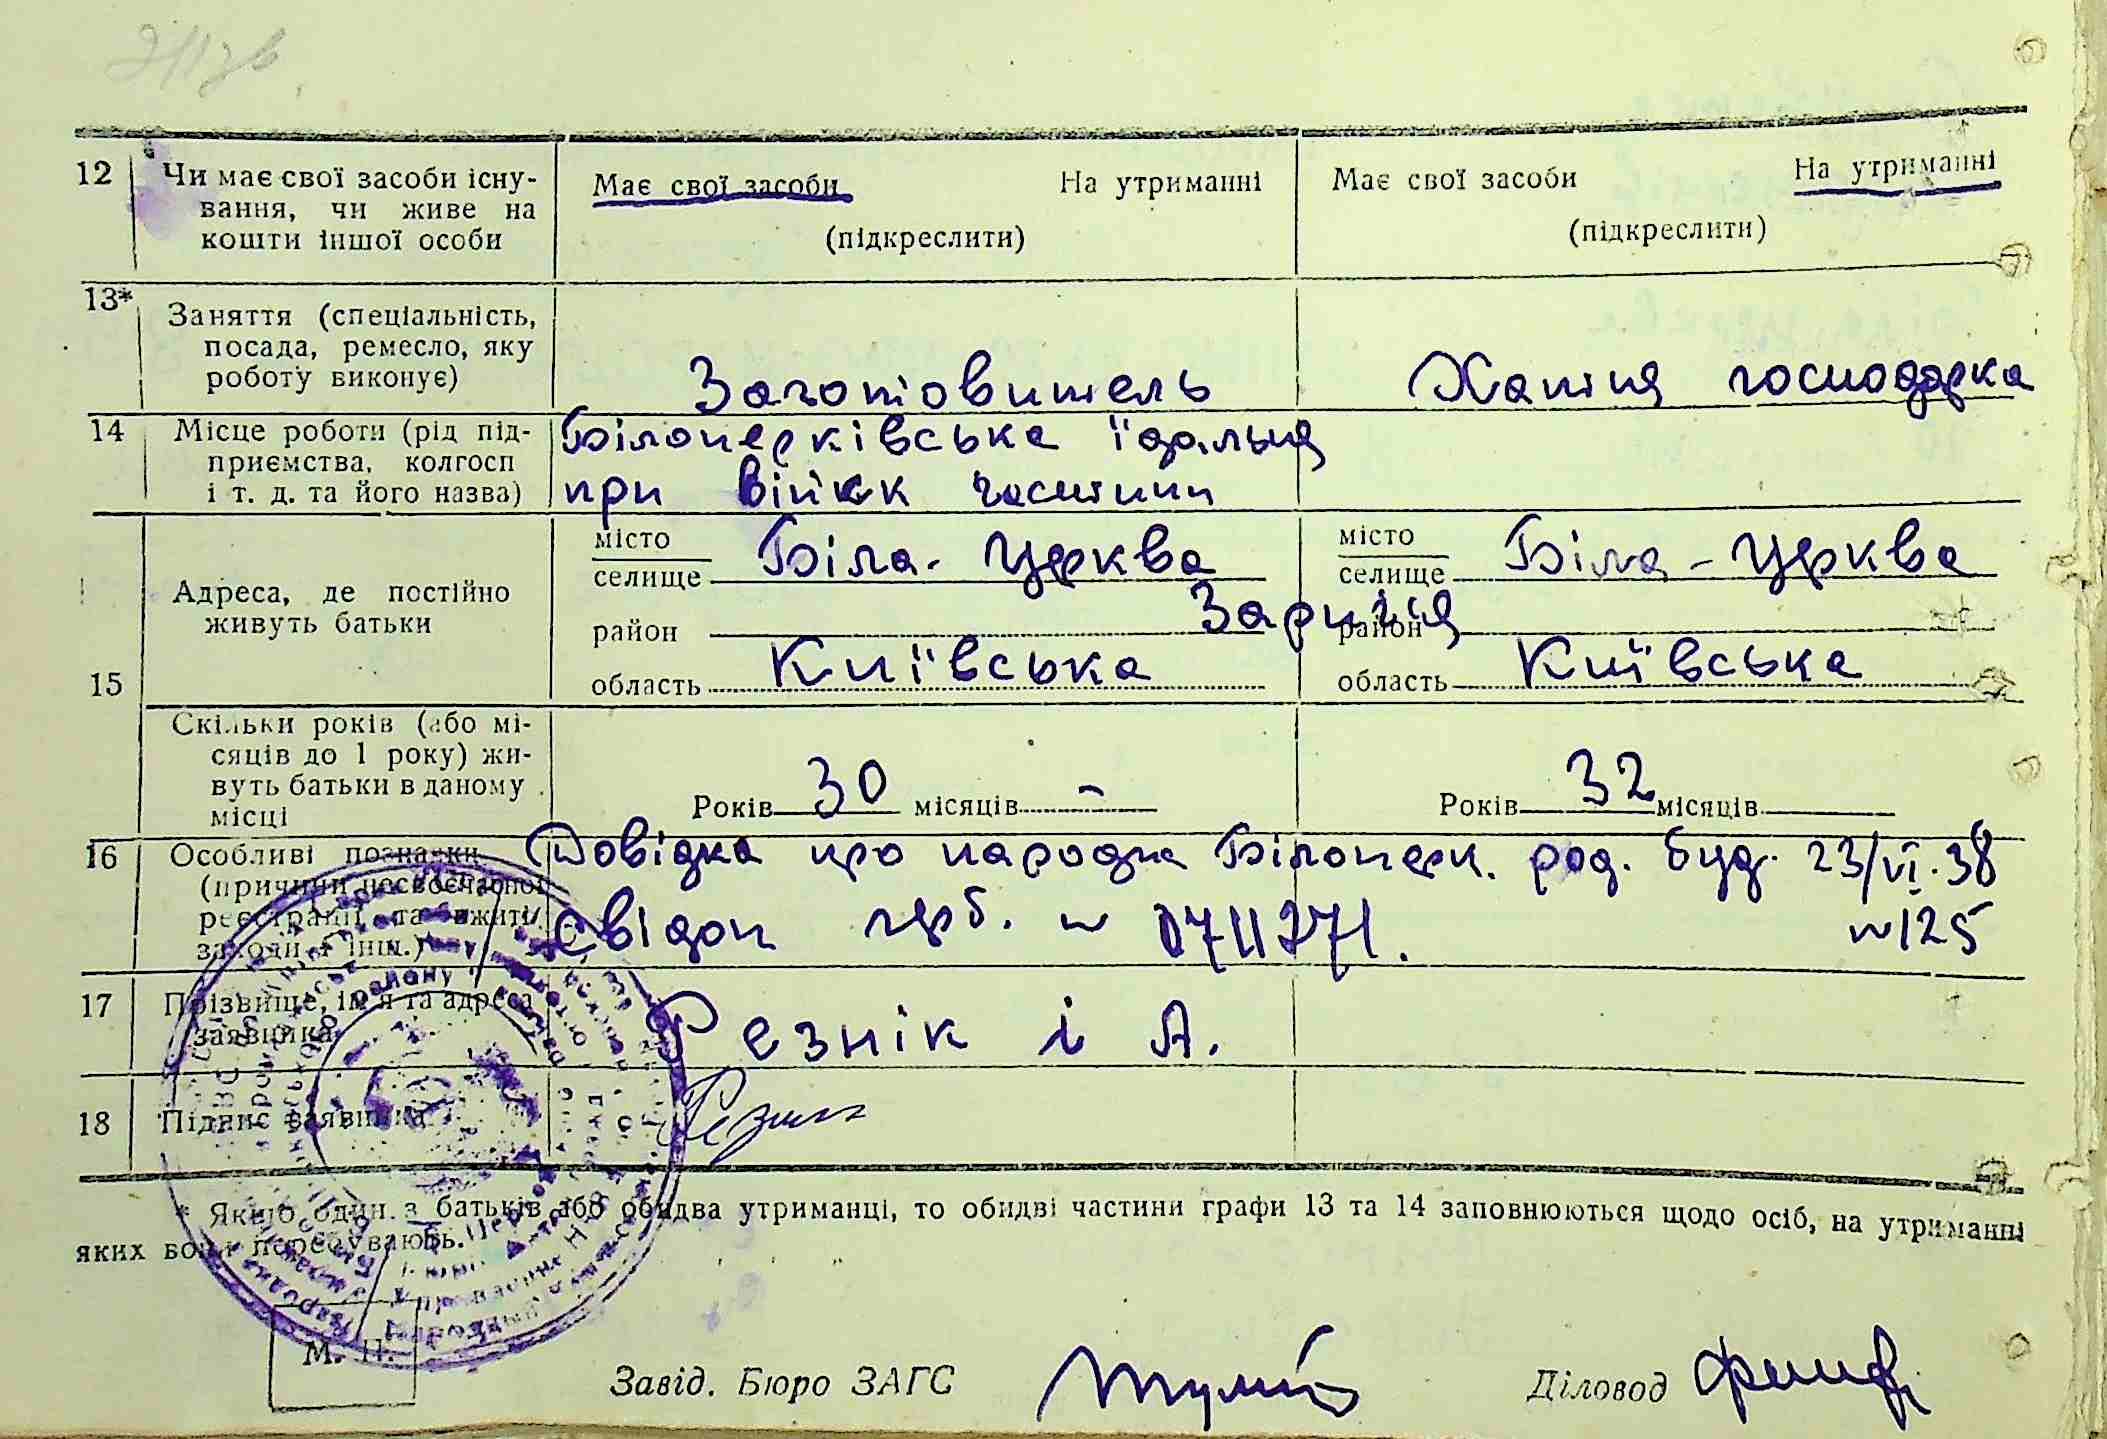 12 Чи має свої засоби існу-
вання, чи живе на
кошти іншої особи
Має свої засоби На утриманні
(підкреслити)
Має свої засоби На утриманні
(підкреслити)
13* Заняття (спеціальність,
посада, ремесло, яку
роботу виконує)
Заготовитель
Хатня господарка
14 Місце роботи (рід під-
приємства, колгосп
і т. д. та його назва)
Білоцерківська їдальня
при війкк частини
15 Адреса, де постійно
живуть батьки
місто
селище Біла-Церква
район Заріччя
область Київська
місто
селище Біла-Церква
район
область Київська
Скільки років (або мі-
сяців до 1 року) жи-
вуть батьки в даному
місці
Років 30 місяців -
Років 32 місяців
16 Особливі познаки
(причини несвоєчасної
реєстрації та вжиті
заходи і інш.)
Довідка про народж Білоцерк. род. буд. 23/VI.38
Свідоц № 0711271. №125
17 Прізвище, ім'я та адреса
заявника
Резнік і А.
18 Підпис заявника
Резник
* Якщо один з батьків або обидва утриманці, то обидві частини графи 13 та 14 заповнюються щодо осіб, на утриманні
яких вони перебувають.
М. П.
Завід. Бюро ЗАГС
Діловод